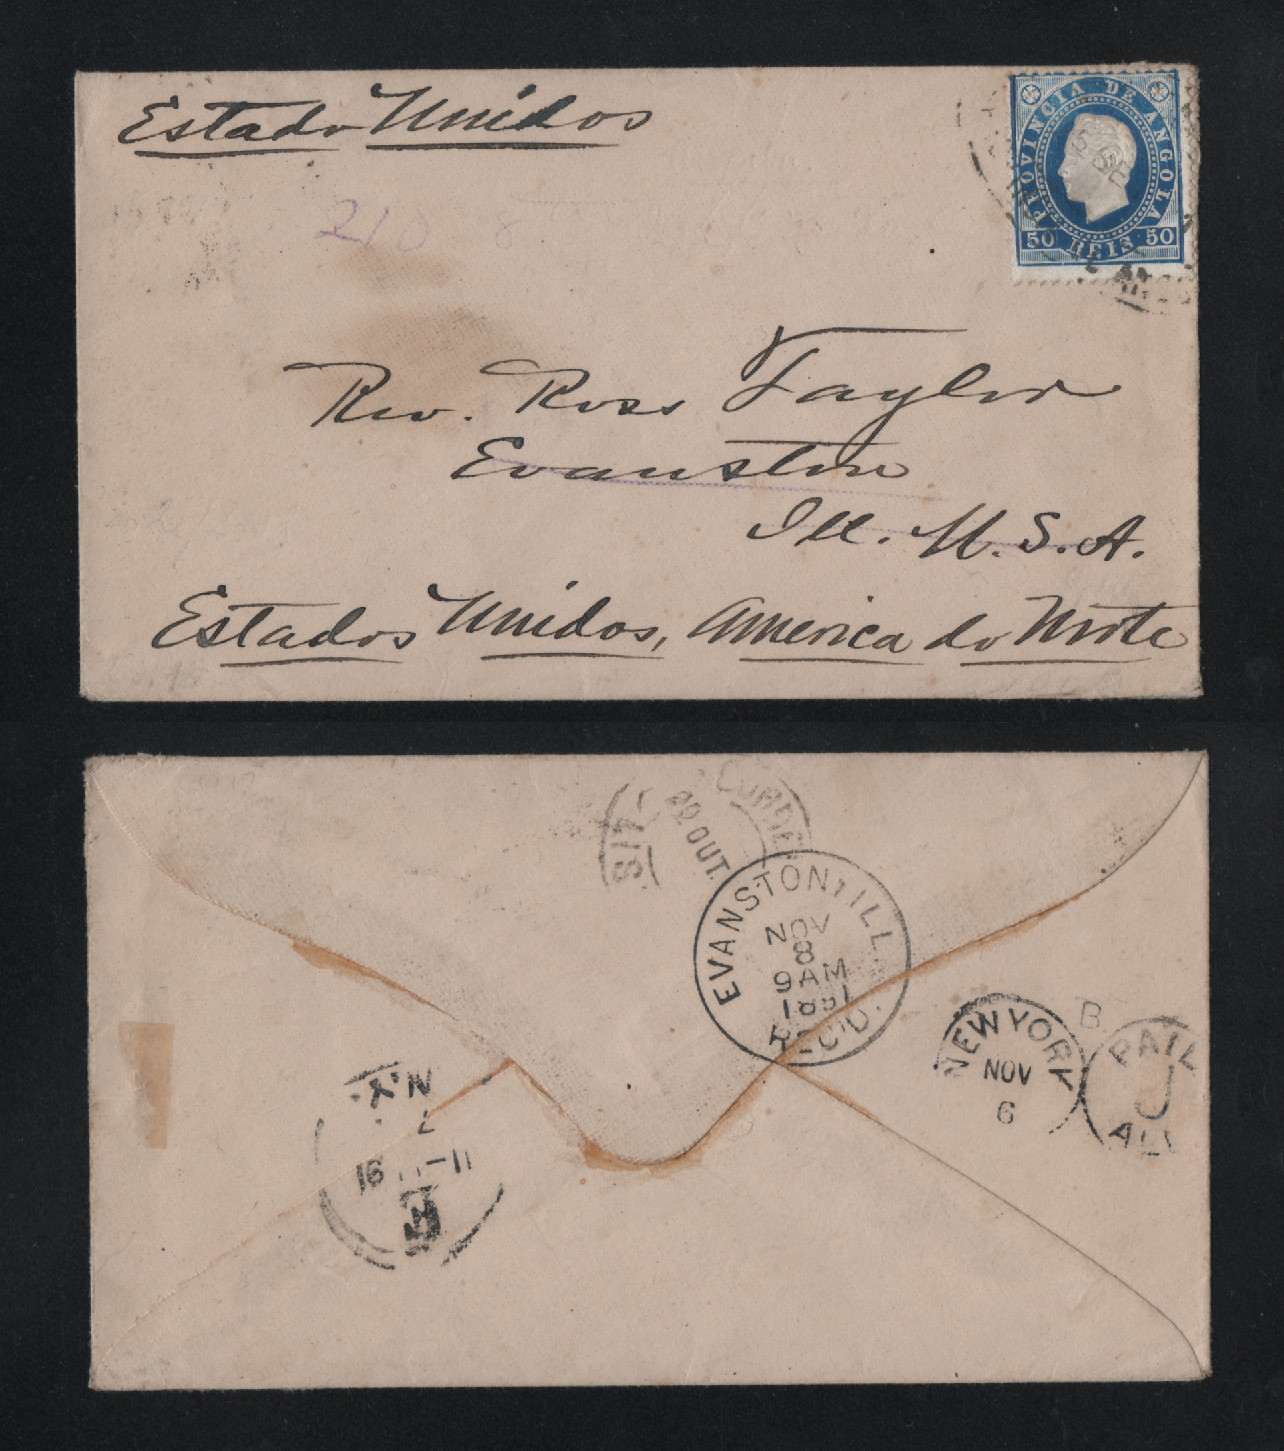 Estado Unidos
PROVINCIA DE ANGOLA
50 REIS 50
210 8
Rev. Ross Taylor
Evanston
Ill. U.S.A.
Estados Unidos, America do Norte
CORREIO
22 OUT.
EVANSTON, ILL.
NOV
8
9 AM
1891
REC'D.
NEW YORK
NOV
6
B
PAID
ALL
N.Y.
7